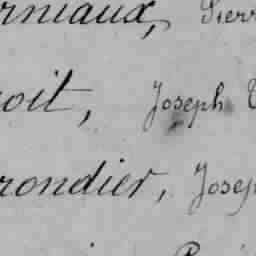 rniaux, Pierr
oit, Joseph
rondier, Josep